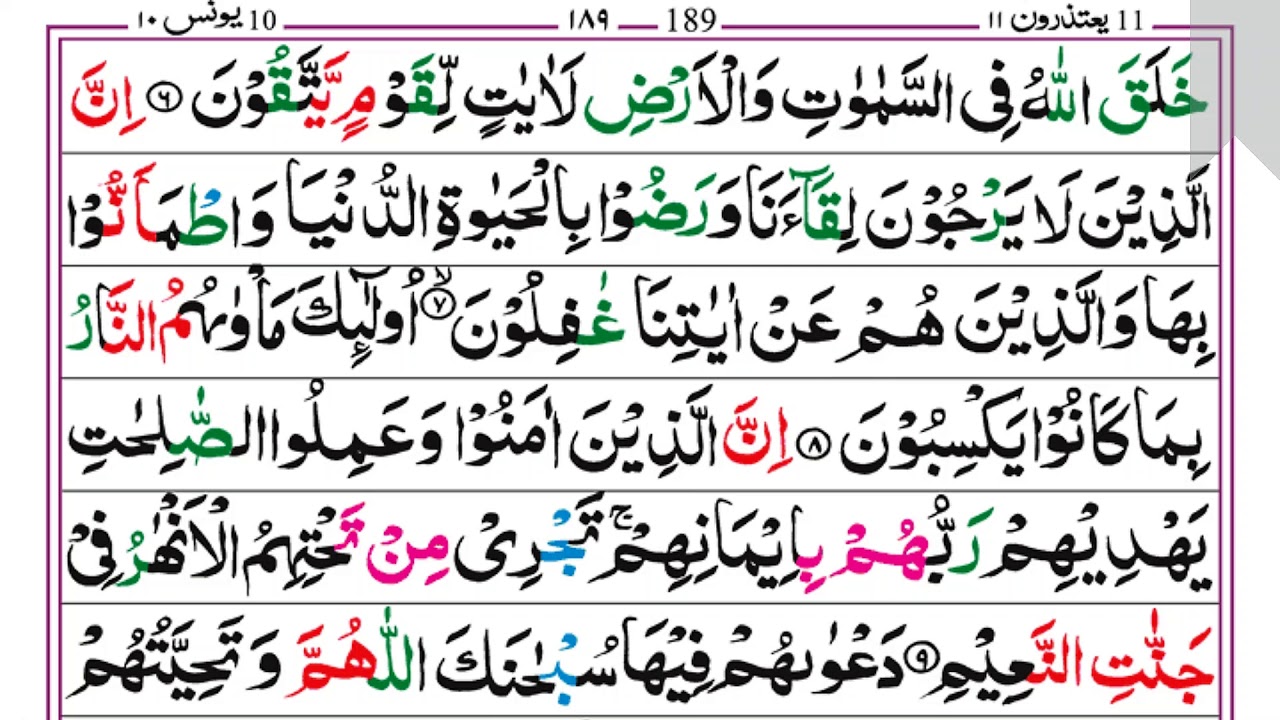 11 يعتذرون ١١ 189 — ١٨٩ 10 يونس ١٠
خَلَقَ اللّٰهُ فِى السَّمٰوٰتِ وَالْاَرْضِ لَاٰيٰتٍ لِّقَوْمٍ يَّتَّقُوْنَ ۶ اِنَّ
الَّذِيْنَ لَا يَرْجُوْنَ لِقَآءَنَا وَرَضُوْا بِالْحَيٰوةِ الدُّنْيَا وَاطْمَاَنُّوْا
بِهَا وَالَّذِيْنَ هُمْ عَنْ اٰيٰتِنَا غٰفِلُوْنَ ۙ۷ اُولٰٓئِكَ مَاْوٰىهُمُ النَّارُ
بِمَا كَانُوْا يَكْسِبُوْنَ ۸ اِنَّ الَّذِيْنَ اٰمَنُوْا وَعَمِلُوا الصّٰلِحٰتِ
يَهْدِيْهِمْ رَبُّهُمْ بِاِيْمَانِهِمْ ۚ تَجْرِىْ مِنْ تَحْتِهِمُ الْاَنْهٰرُ فِىْ
جَنّٰتِ النَّعِيْمِ ۹ دَعْوٰىهُمْ فِيْهَا سُبْحٰنَكَ اللّٰهُمَّ وَتَحِيَّتُهُمْ